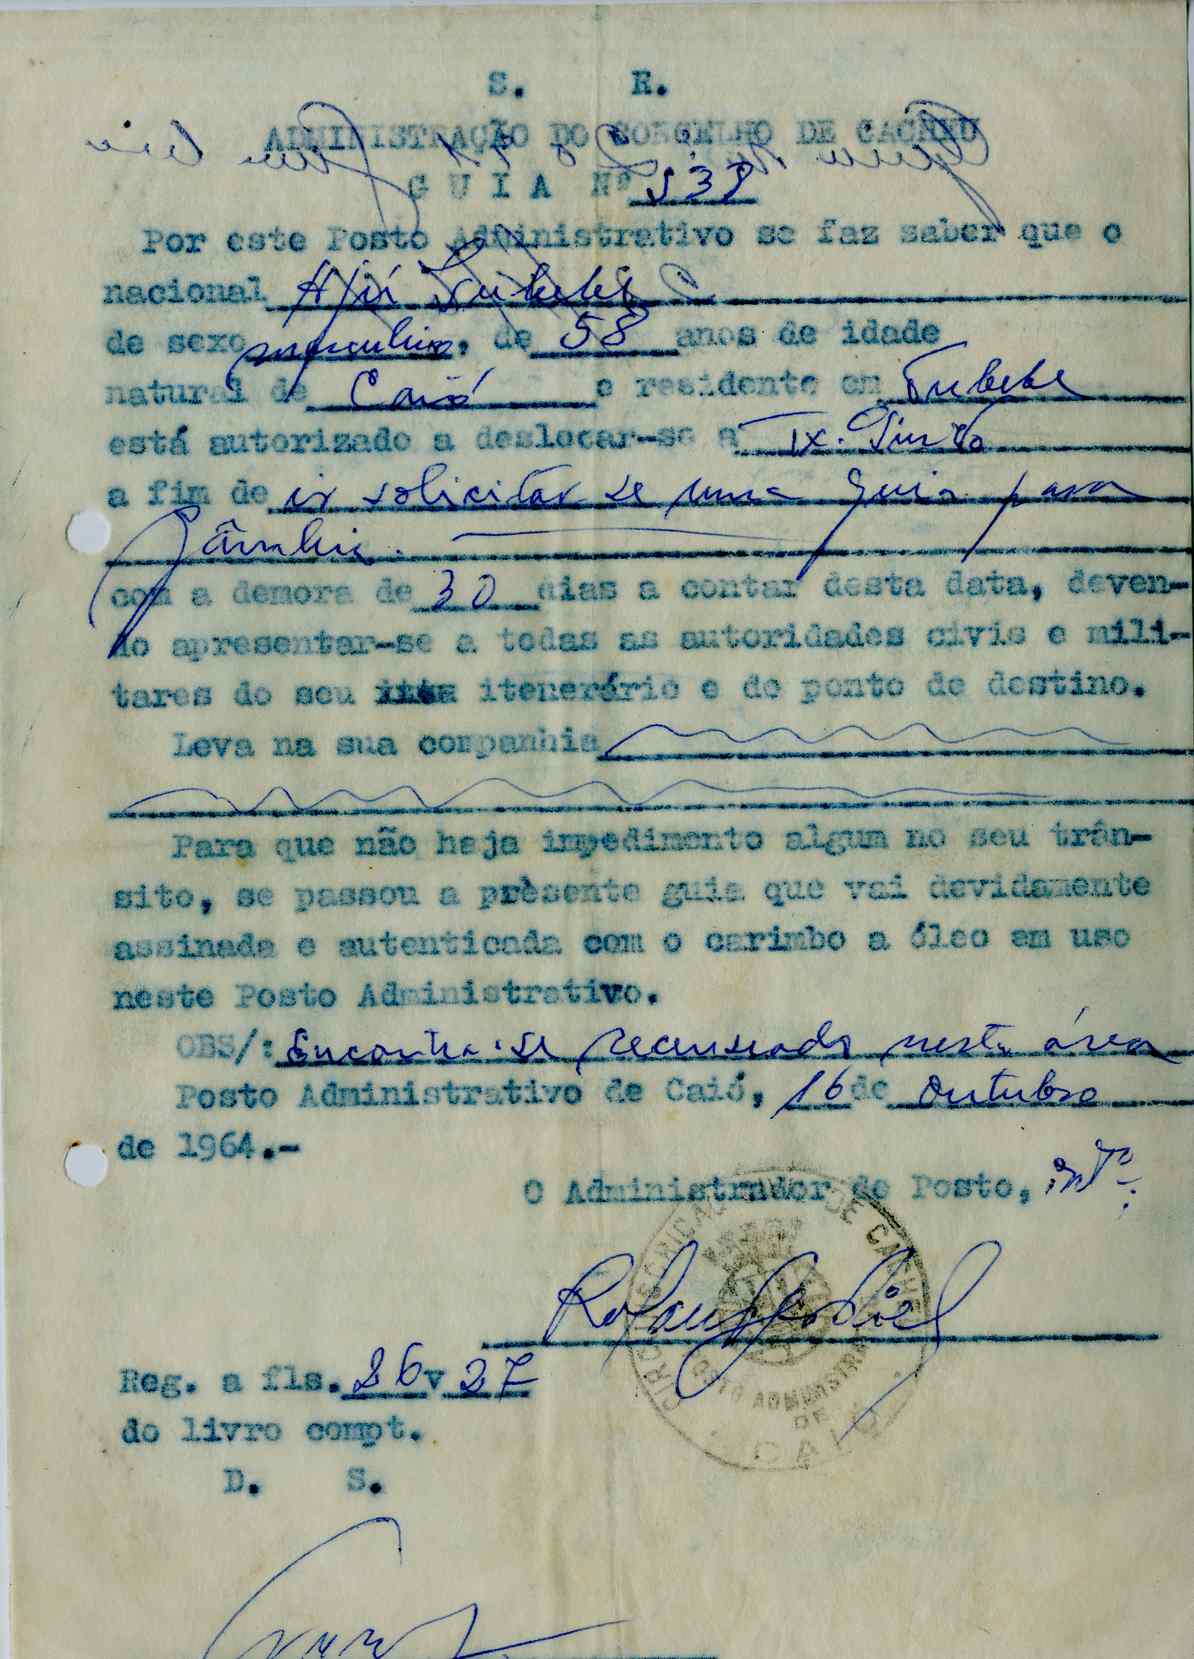 S. R.
ADMINISTRAÇÃO DO CONCELHO DE CACHEU
G U I A Nº 537
Por este Posto Administrativo se faz saber que o
nacional
de sexo masculino, de 58 anos de idade
natural de Caió e residente em Tubebe
está autorizado a deslocar-se a Tx. Pinto
a fim de ir solicitar-se uma guia para
Gâmbia.
com a demora de 30 dias a contar desta data, deven-
do apresentar-se a todas as autoridades civis e mili-
tares do seu itenerário e do ponto de destino.
Leva na sua companhia
Para que não haja impedimento algum no seu trân-
sito, se passou a prèsente guia que vai devidamente
assinada e autenticada com o carimbo a óleo em uso
neste Posto Administrativo.
OBS/: Encontra-se recenseado nesta área
Posto Administrativo de Caió, 16 de Outubro
de 1964.-
O Administrador de Posto, intº.
CIRCUNSCRICAO DE CACHEU
POSTO ADMINISTRA
DE
CAIÓ
Reg. a fls. 26 v 27
do livro compt.
D. S.